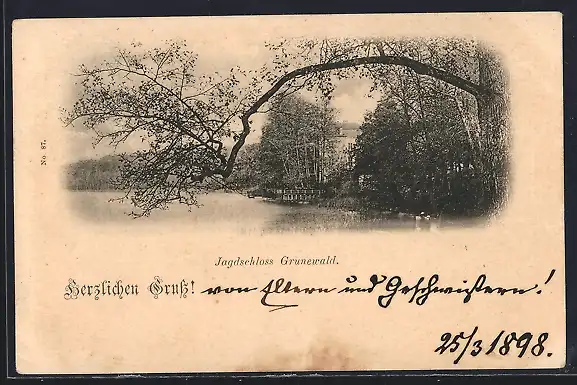 No. 87.
Jagdschloss Grunewald.
Herzlichen Gruß! von Eltern und Geschwistern!
25/3 1898.